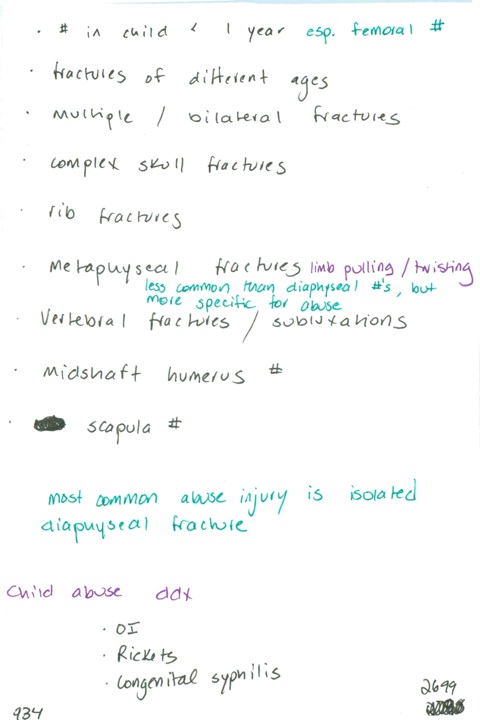 · # in child < 1 year esp. femoral #
· fractures of different ages
· multiple / bilateral fractures
· complex skull fractures
· rib fractures
· Metaphyseal fractures limb pulling / twisting
less common than diaphyseal #'s, but
more specific for abuse
· Vertebral fractures / subluxations
· Midshaft humerus #
· scapula #
most common abuse injury is isolated
diaphyseal fracture
Child abuse ddx
· OI
· Rickets
· Congenital syphilis
934
2699